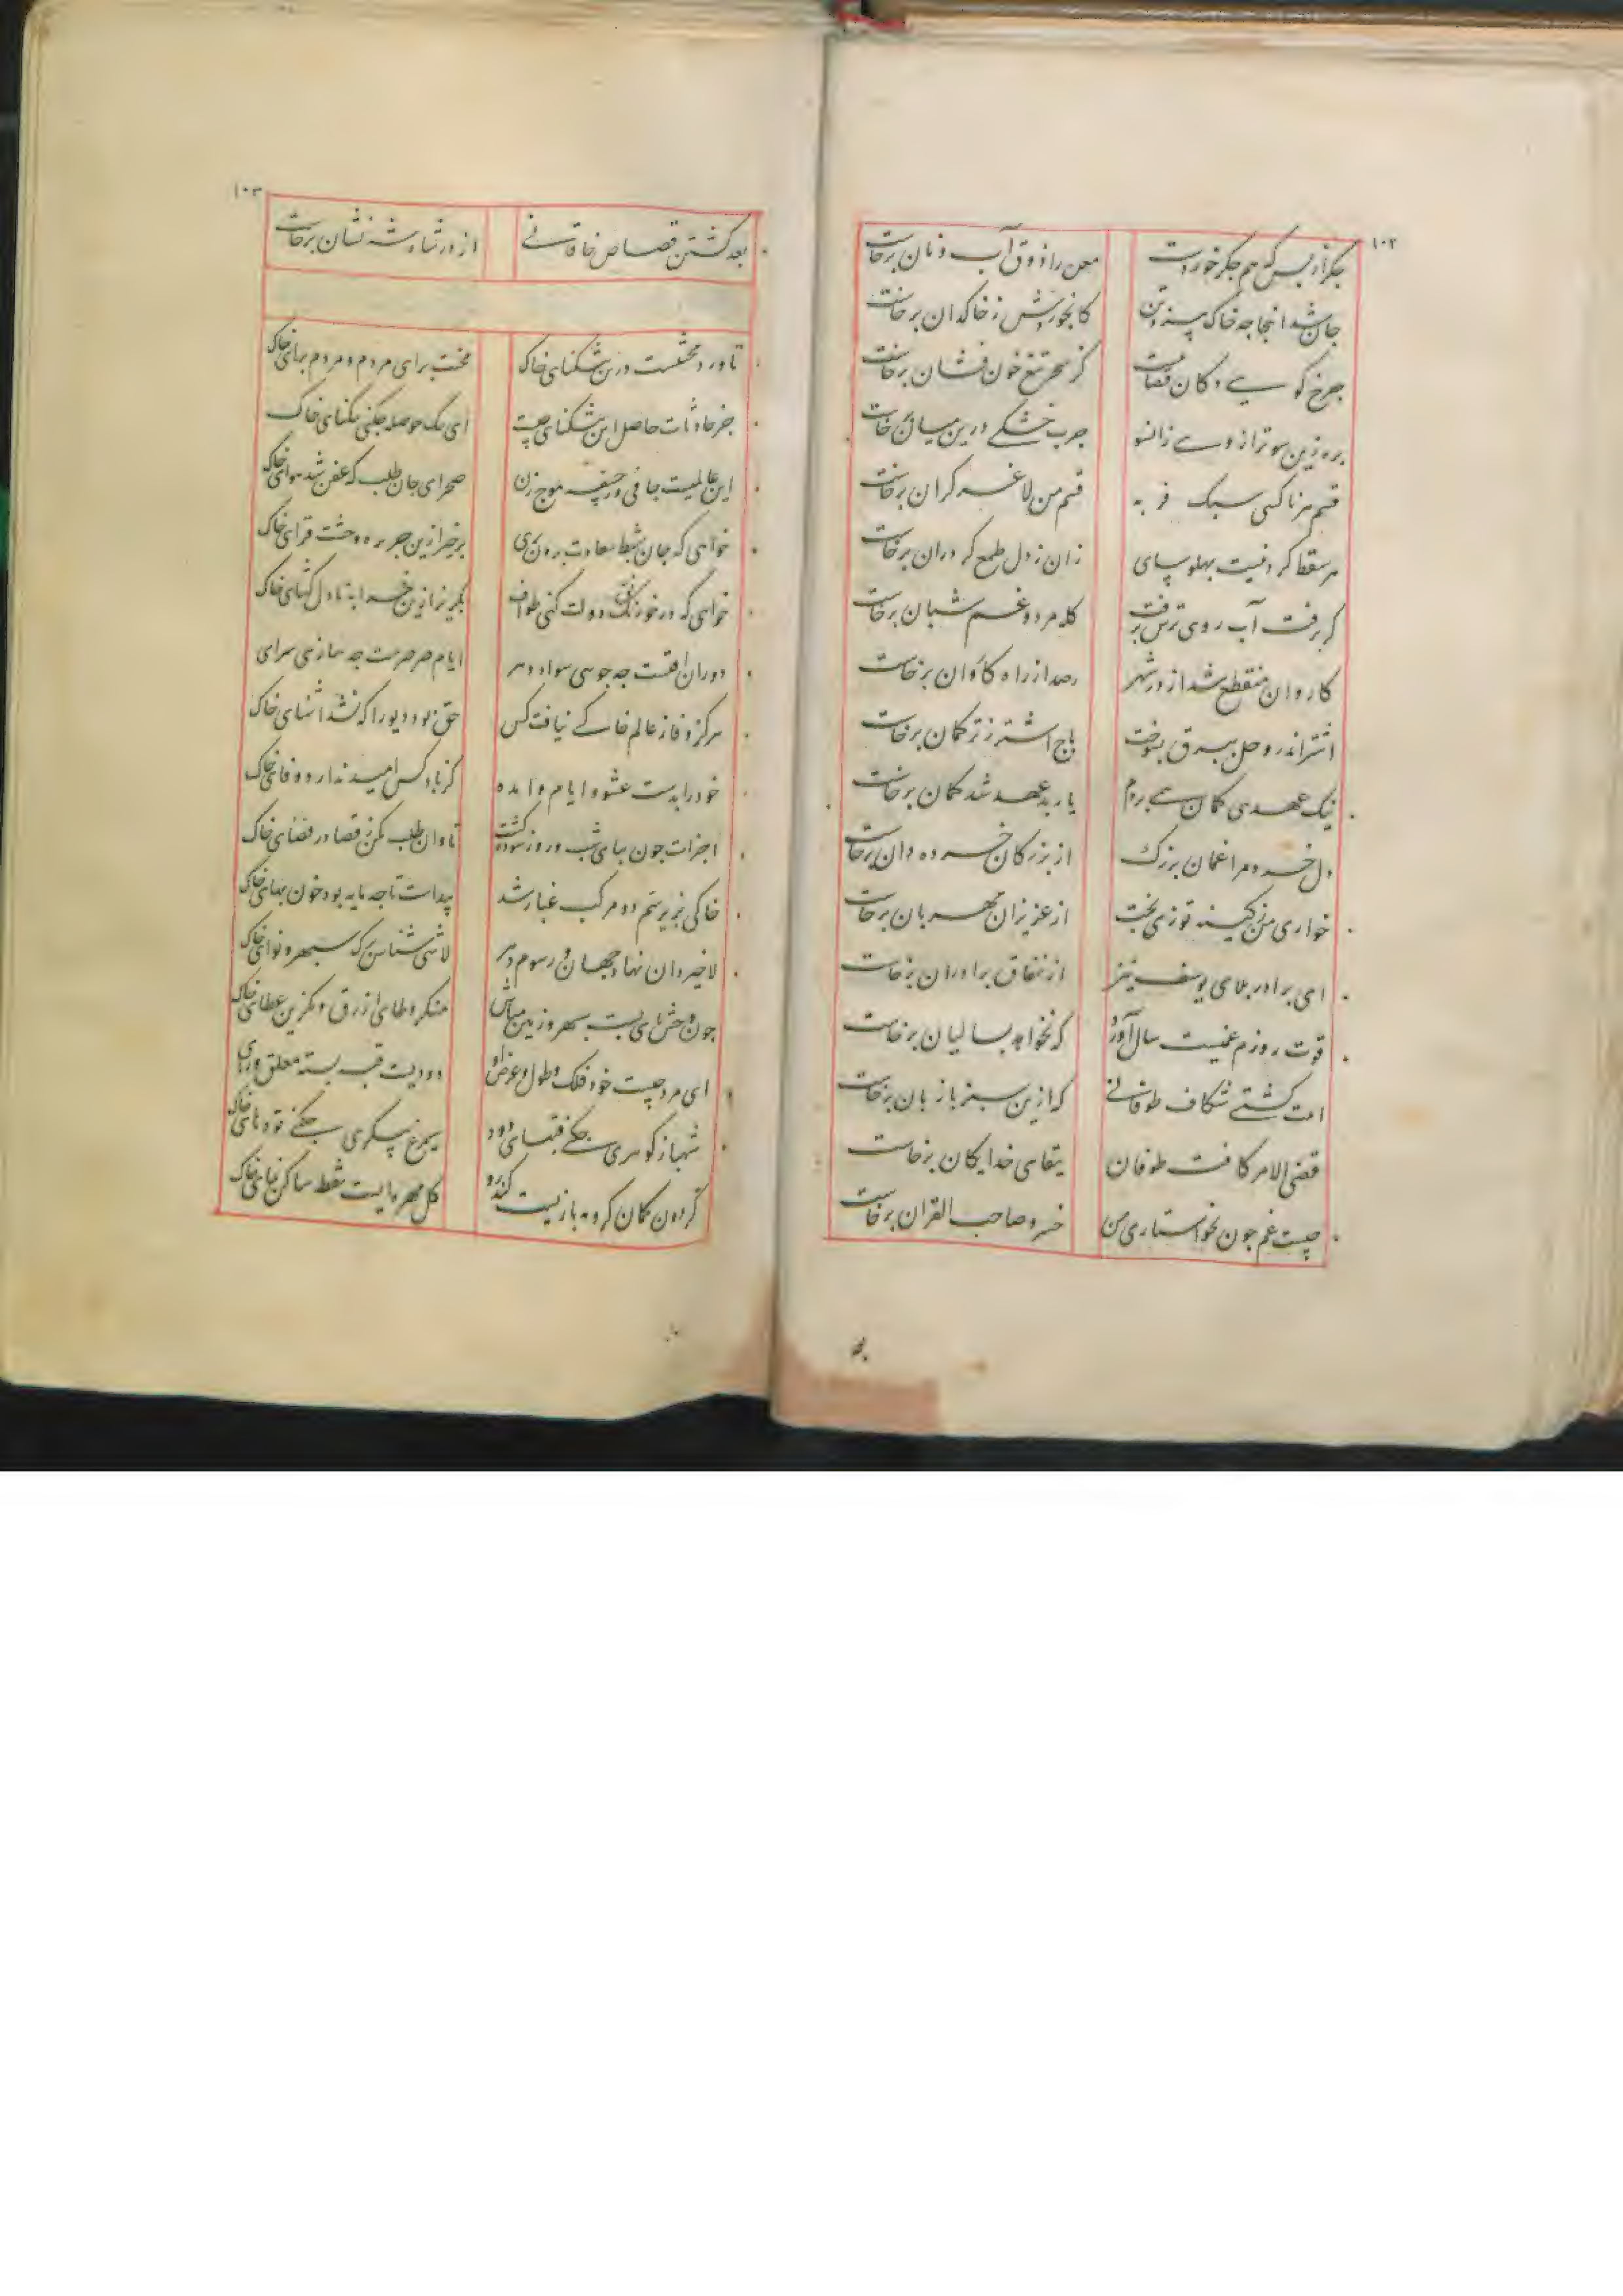 ۱۰۲
جگر از بس که هم جگر خوردست معن را ذوق آب و نان برخاست
جان شد اینجا چه خاک پیزد تن کابخوردش ز خاکدان برخاست
چرخ گویی دکان قصابیست کز سحر تیغ خون فشان برخاست
بره زین سو ترازو سے زانسو چرب خشکی درین میان برخاست
قسم هر ناکسی سبک فربه قسم من لاغر گران برخاست
هر سقطا گردنیست پهلوسای زان ز دل طمع گرد ران برخاست
گر برفت آب روی ترس برفت گله مرد و غم شبان برخاست
کاروان منقطع شد از در شهر رصد از راه کاروان برخاست
اشتر اندر وحل ببرق بسوخت باج اشتر ز ترکمان برخاست
نیک عهدی گمان سے بردم یار بدعهد شد گمان برخاست
دل خرد مرا غمان بزرگ از بزرگان خرده دان برخاست
خواری من ز کینه توزی بخت از عزیزان مهربان برخاست
ای برادر بلای یوسف نیز از نفاق برادران برخاست
قوت روزم غمیست سال آورد که نخواهد بسالیان برخاست
اینت کشتے شکاف طوفانے که ازین سبز بادبان برخاست
قضی الامر کافت طوفان ببقای خدایگان برخاست
چیست غم چون بخواستاری من خسرو صاحب القران برخاست
۱۰۳
بعد کشتن قصاص خاقانے از در شاه شه نشان برخاست
تا ورد محنتست درین تنگنای خاک محنت برای مردم و مردم برای خاک
جز حادثات حاصل این تنگنای چیست ای تنگ حوصله چکنی تنگنای خاک
این عالمیست جافی و ز جیفه موج زن صحرای جان طلب که عفن شد هوای خاک
خواهی که جان بشط سعادت برون بری برخیز ازین جزیره وحشت فزای خاک
خواهی که در خورنگه دولت کنی طواف بگریز ازین خرابه نادل گشای خاک
دوران آفتست چه جویی سواد دهر ایام صرصرست چه سازی سرای
هرگز وفا ز عالم خاکے نیافت کس حق بود دیو را که نشد آشنای خاک
خود را بدست عشوه ایام وا مده کز باد کس امید ندارد وفای خاک
اجزات چون بپای شب و روز سوده گشت تاوان طلب مکن ز قضا در فضای خاک
خاکی که زیر سم دو مرکب غبار شد پیداست تا چه مایه بود خون بهای خاک
لاخیر دان نهاد جهان و رسوم دهر لاشی شناس برگ سپهر و نوای خاک
چون وحش پای بست سپهر و زمین مباش منگر وطای ازرق و مگزین عطای خاک
ای مرد چیست خود فلک و طول و عرض او دودیست قبه بسته معلق ورای
شهباز گوهری چکنے قبهای دود سیمرغ پیکری چکنے توده های خاک
گردون کمان گروهه بازیست کندرو گل مهره ایست نقطه ساکن نمای خاک